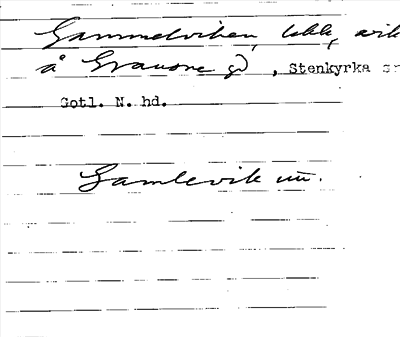 Gammelviken, tekk, vik
å Grausne gd, Stenkyrka sn
Gotl. N. hd.
Gamlevik un.